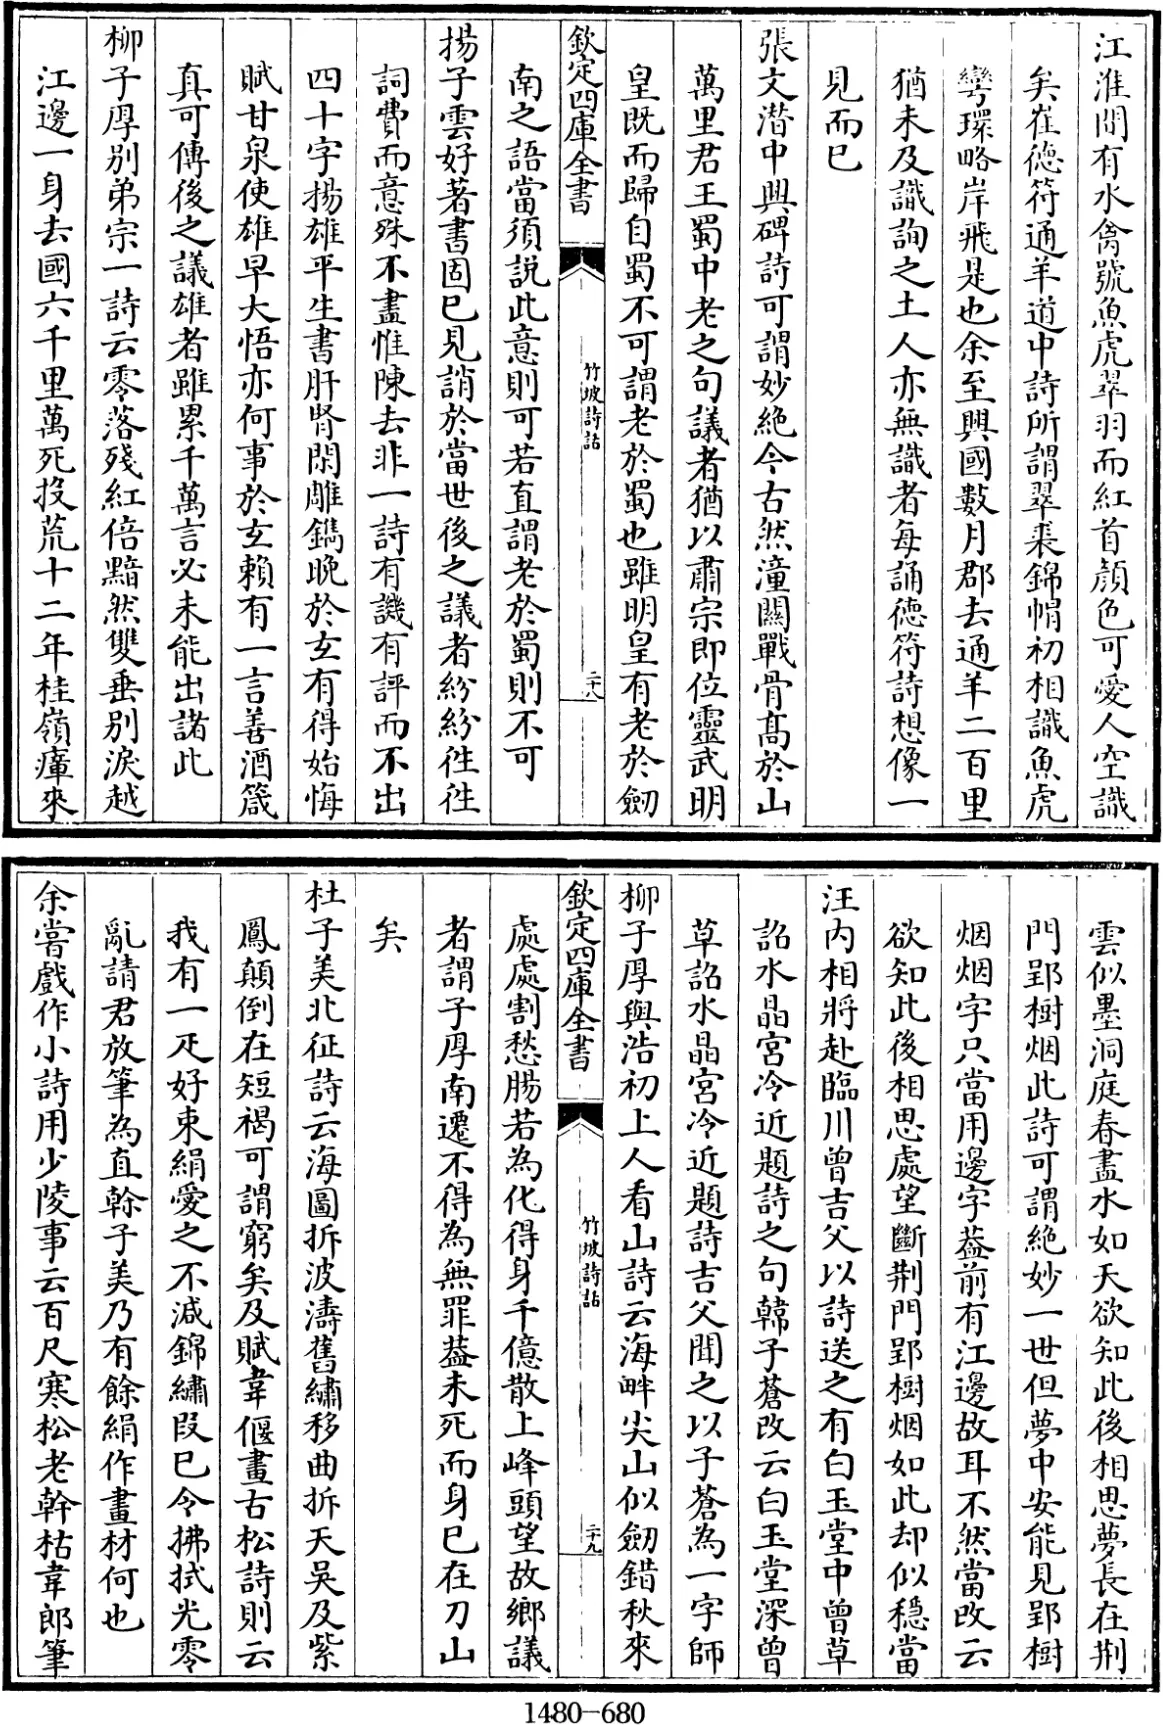 江淮間有水禽號魚虎翠羽而紅首顔色可愛人空識
矣崔徳符通羊道中詩所謂翠裘錦帽初相識魚虎
彎環略岸飛是也余至興國數月郡去通羊二百里
猶未及識詢之土人亦無識者每誦徳符詩想像一
見而已
張文潜中興碑詩可謂妙絶今古然潼關戰骨髙於山
萬里君王蜀中老之句議者猶以肅宗即位靈武明
皇既而歸自蜀不可謂老於蜀也雖明皇有老於劒
欽定四庫全書
竹坡詩話
二十八
南之語當須説此意則可若直謂老於蜀則不可
揚子雲好著書固已見誚於當世後之議者紛紛徃徃
詞費而意殊不盡惟陳去非一詩有譏有評而不出
四十字揚雄平生書肝腎閑雕鐫晩於𤣥有得始悔
賦甘泉使雄早大悟亦何事於𤣥頼有一言善酒箴
真可傳後之議雄者雖累千萬言必未能出諸此
柳子厚别弟宗一詩云零落殘紅倍黯然雙垂别淚越
江邊一身去國六千里萬死投荒十二年桂嶺瘴來
雲似墨洞庭春盡水如天欲知此後相思夢長在荆
門郢樹烟此詩可謂絶妙一世但夢中安能見郢樹
烟烟字只當用邊字葢前有江邊故耳不然當改云
欲知此後相思處望斷荆門郢樹烟如此却似穏當
汪内相將赴臨川曾吉父以詩送之有白玉堂中曾草
詔水晶宫冷近題詩之句韓子蒼改云白玉堂深曽
草詔水晶宫冷近題詩吉父聞之以子蒼為一字師
柳子厚與浩初上人看山詩云海畔尖山似劒錯秋來
欽定四庫全書
竹坡詩話
二十九
處處割愁腸若為化得身千億散上峰頭望故鄉議
者謂子厚南遷不得為無罪葢未死而身已在刀山
矣
杜子美北征詩云海圖拆波濤舊繡移曲折天吳及紫
鳳顛倒在短褐可謂窮矣及賦韋偃畫古松詩則云
我有一疋好東絹愛之不減錦繡段已令拂拭光零
亂請君放筆為直幹子美乃有餘絹作畫材何也
余嘗戲作小詩用少陵事云百尺寒松老幹枯韋郎筆
1480-680